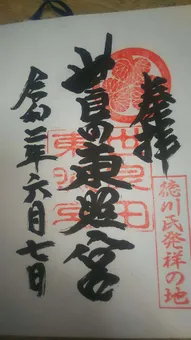 奉拝
世良田東照宮
世良田
東照宮
徳川氏発祥の地
令和二年六月七日